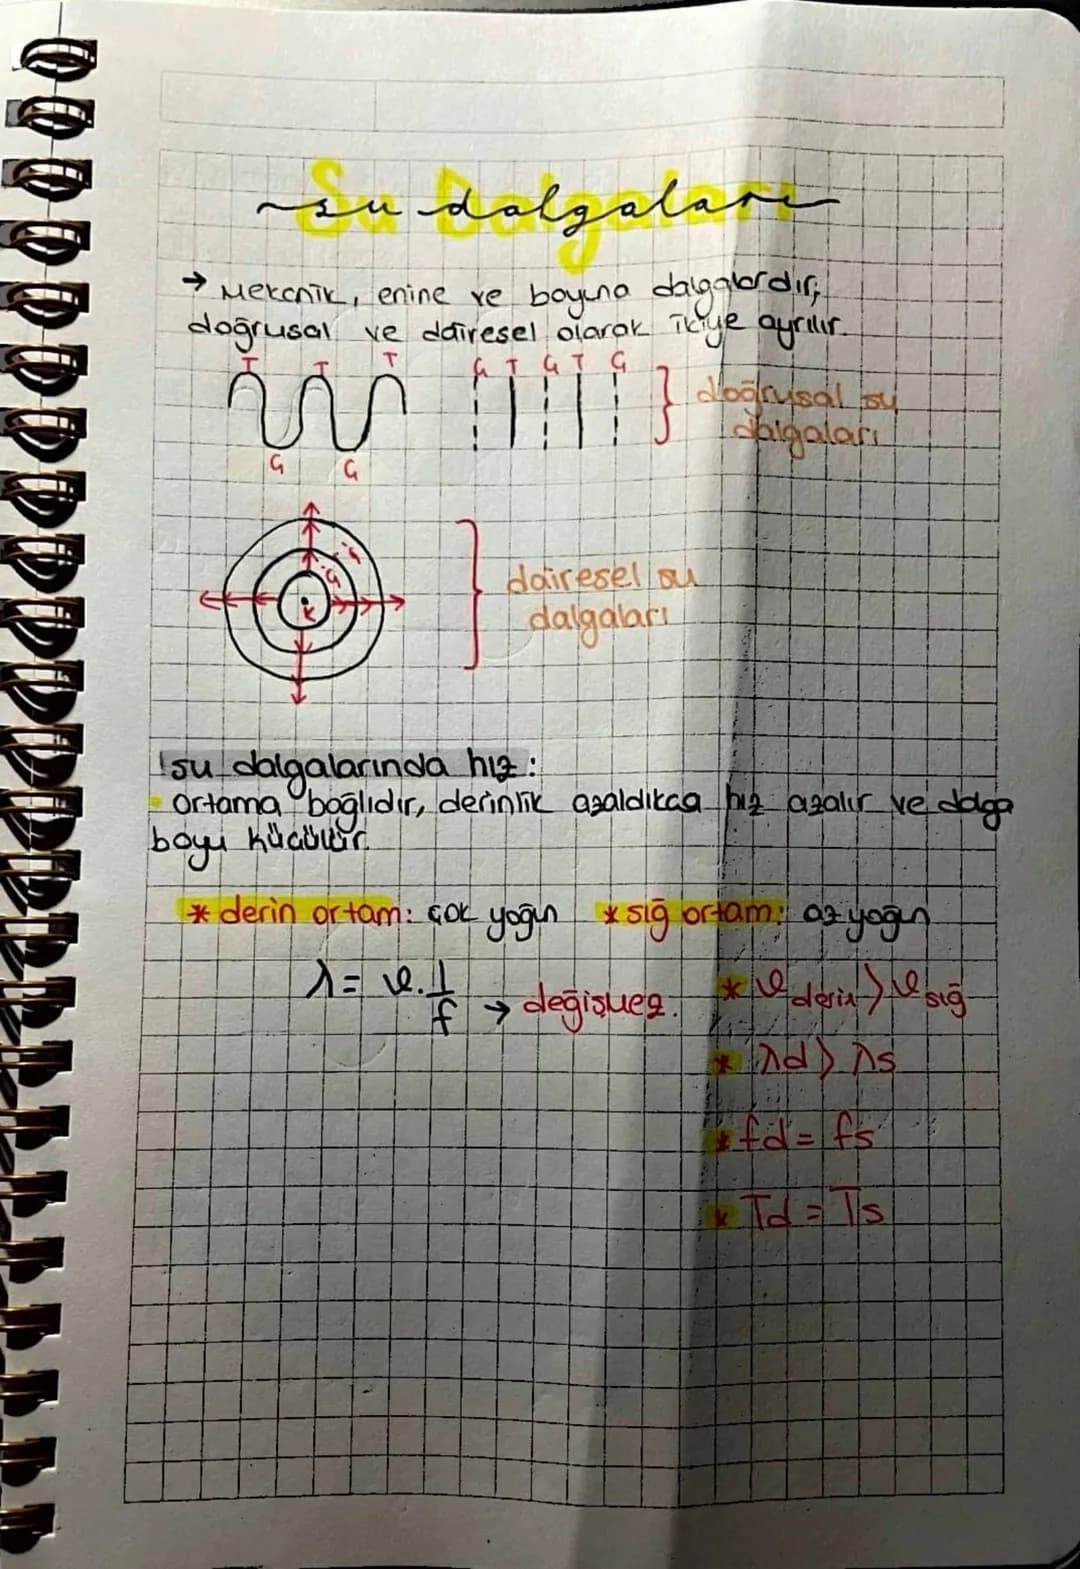 Su Dalgaları
su dalgaları
→ Mekanik, enine ve boyuna dalgalardır,
doğrusal ve dairesel olarak ikiye ayrılır.
T T T G T G T G
doğrusal su
dalgaları
G G
G
G
K
dairesel su
dalgaları
! su dalgalarında hız:
• ortama bağlıdır, derinlik azaldıkça hız azalır ve dalga
boyu küçülür.
* derin ortam: çok yoğun * sığ ortam: az yoğun
λ = v.1/f → değişmez. * v derin > v sığ
* λd > λs
* fd = fs
* Td = Ts